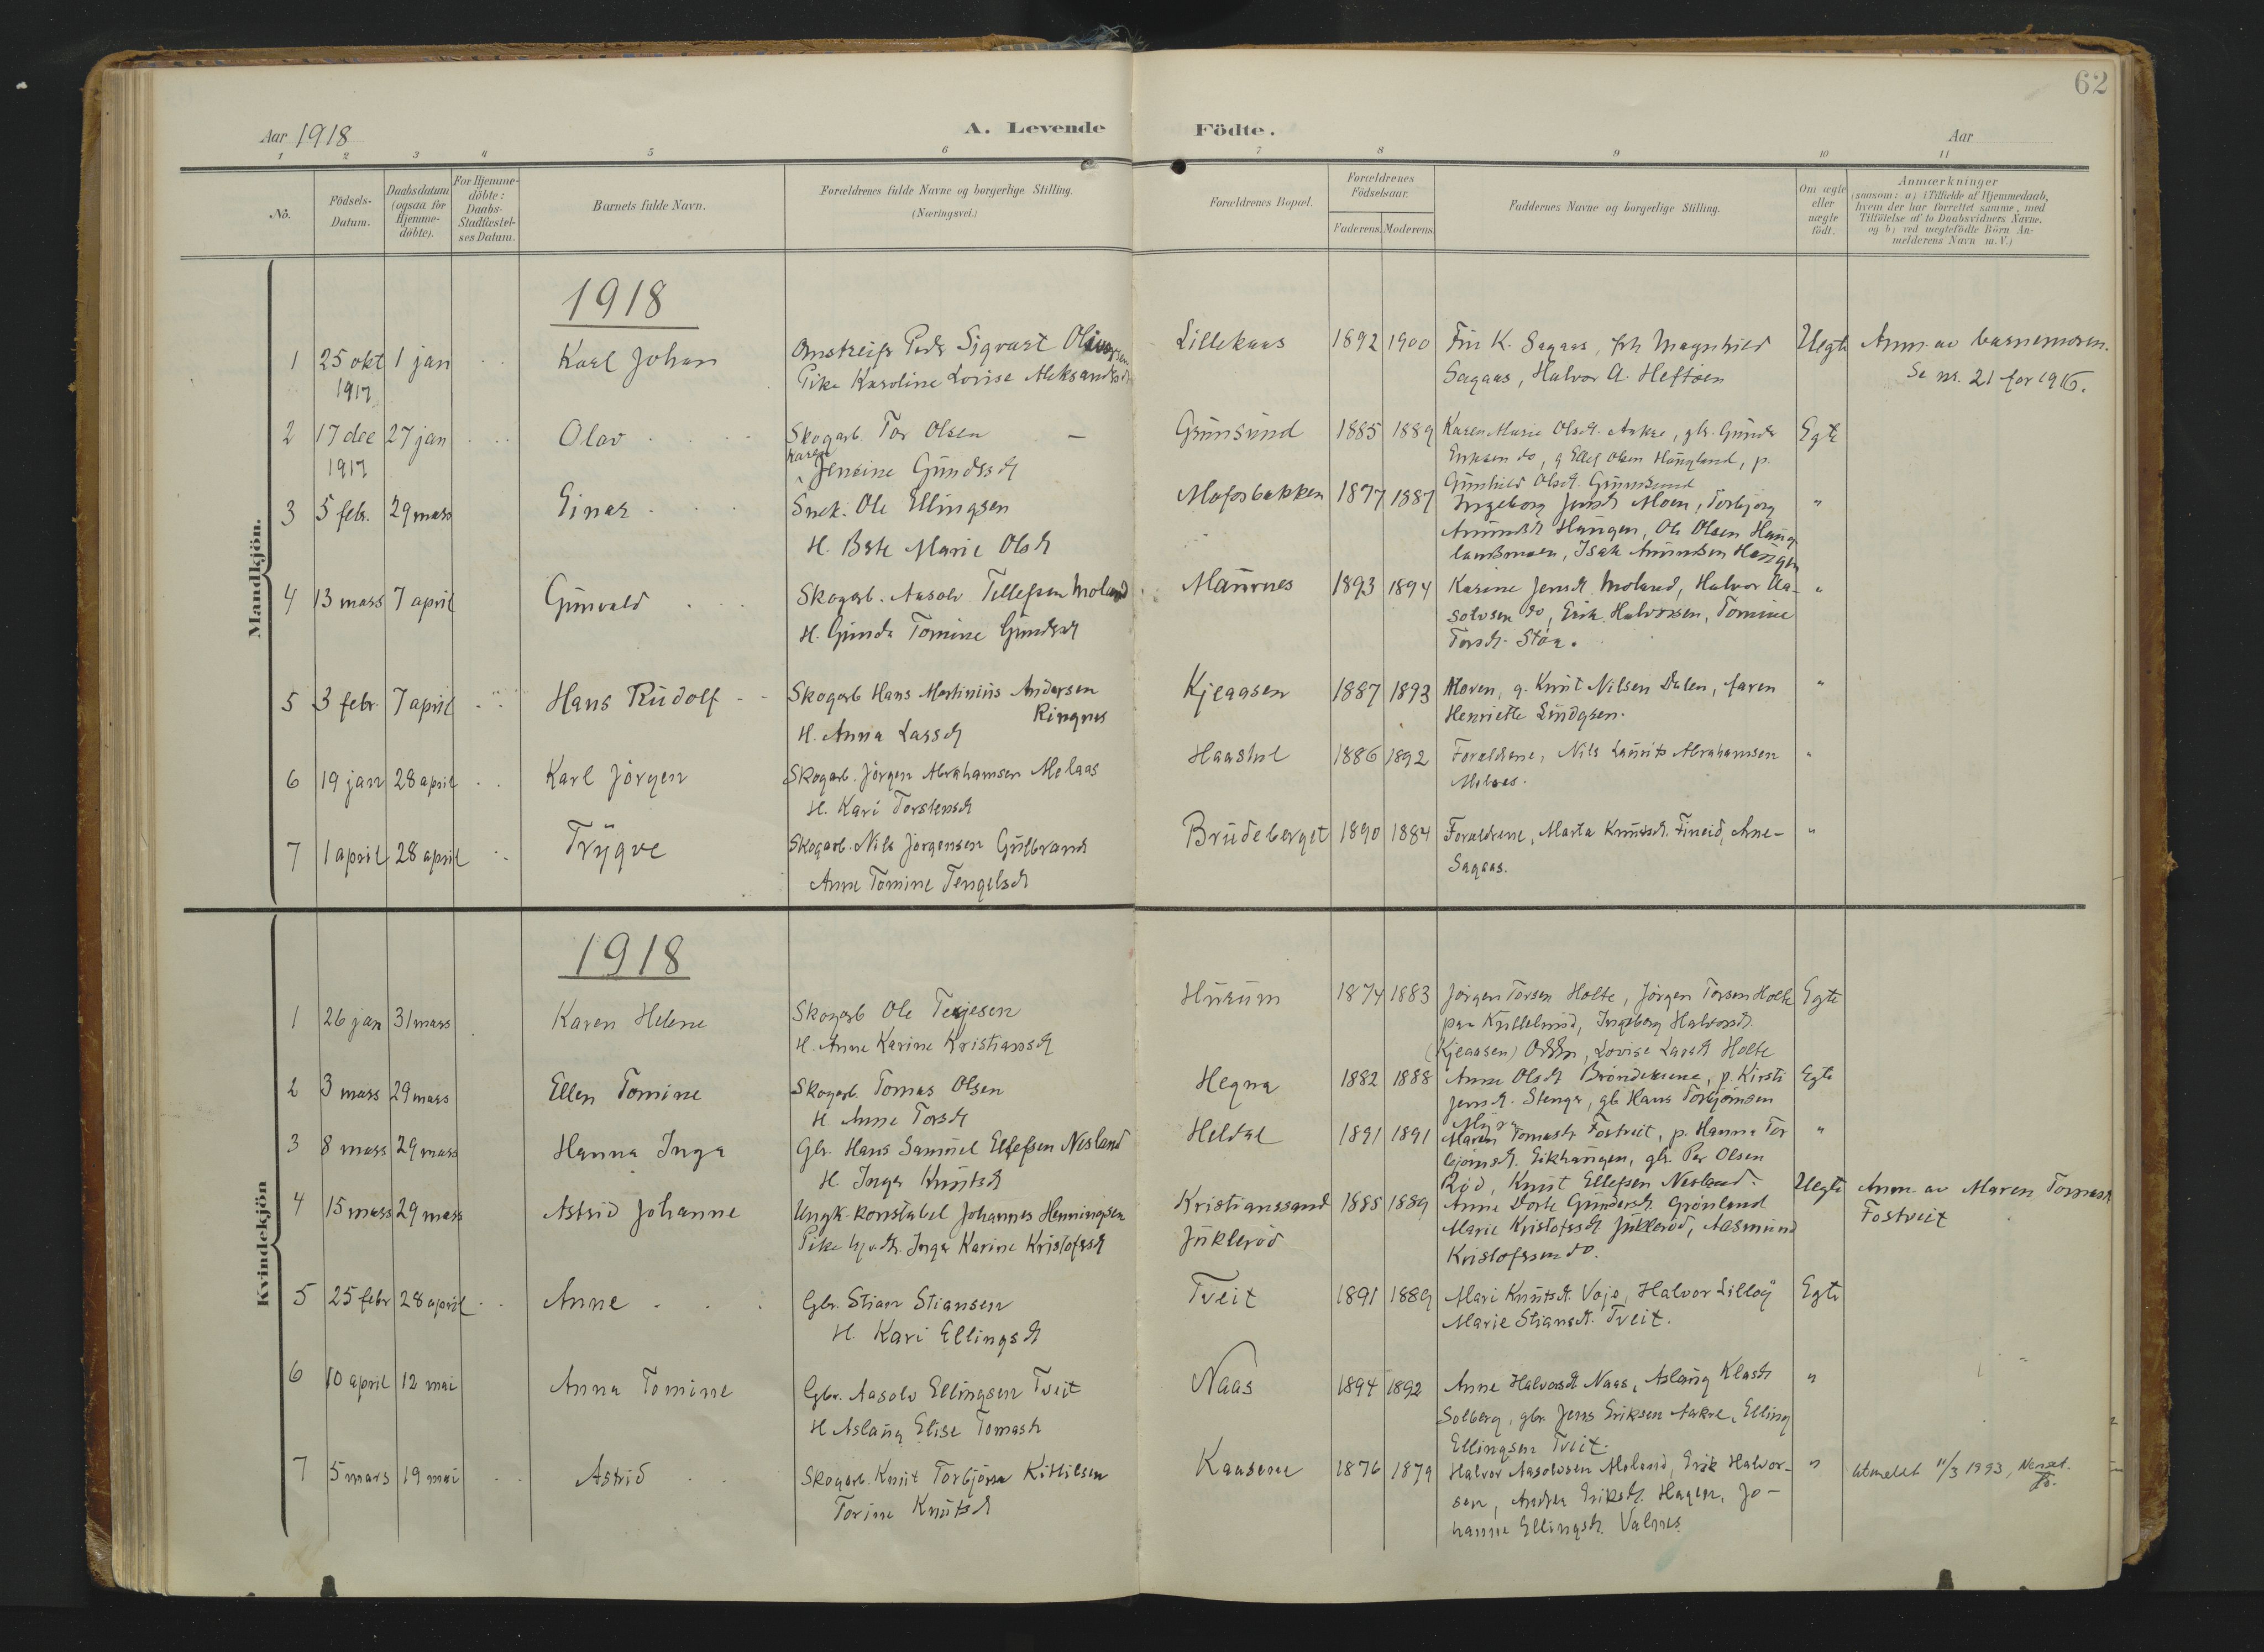 62
Aar 1918
A. Levende Födte.
Aar
1 2 3 4 5 6 7 8 9 10 11
No.
Födsels-
Datum.
Daabsdatum
(ogsaa for
Hjemme-
döbte).
For Hjemme-
döbte:
Daabs-
Stadfæstel-
ses Datum.
Barnets fulde Navn.
Forældrenes fulde Navne og borgerlige Stilling.
(Næringsvei.)
Forældrenes Bopæl.
Forældrenes
Födselsaar.
Faderens. Moderens.
Faddernes Navne og borgerlige Stilling.
Om ægte
eller
uægte
födt.
Anmærkninger
(saasom: a) i Tilfælde af Hjemmedaab,
hvem der har forrettet samme, med
Tilföielse af to Daabsvidners Navne.
og b) ved uægtefödte Börn An-
melderens Navn m. V.)
Mandkjön.
1918
1 25 okt 1 jan Karl Johan Omstreifer Peder Sigvart Lillekaas 1892 1900 Fin K. Sagaas, Magnhild Uegte Anm. av barnemoren.
1917 Pike Karoline Lovise Aleksandersdt Sagaas, Halvor A. Heftöen Se nr. 21 for 1916.
2 17 dec 27 jan Olav Skogarb. Tor Olsen Grunsund 1885 1889 Karen Marie Olsdt. Askre, gbr. Gunder Egte
1917 Karen Jensine Gundersdt Eriksen do, g Ellef Olsen Haugland, p.
Gunhild Olsdt. Grunsund
3 5 febr. 29 mars Einar Snek. Ole Ellingsen Mofosbakken 1877 1887 Ingeborg Jensdt Moen, Torbjorg "
H. Berte Marie Olsdt Amundsdt Haugen, Ole Olsen Haug
landsmoen, Isak Amundsen Haugen
4 13 mars 7 april Gunvald Skogarb. Aasolv Tellefsen Moland Maurnes 1893 1894 Karine Jensdt Moland, Halvor Aa- "
H. Gunda Tomine Gundersdt solvsen do, Erik Halvorsen, Tomine
Torsdt. Stöa.
5 3 febr. 7 april Hans Rudolf Skogarb Hans Martinius Andersen Kjeaasen 1887 1893 Moren, g. Knut Nilsen Dalen, faren "
Ringnes Henriette Lindgsen.
H. Anna Larsdt
6 19 jan 28 april Karl Jörgen Skogarb. Jörgen Abrahamsen Melaas Haashul 1886 1892 Foreldrene, Nils Laurits Abrahamsen "
H. Kari Torstensdt Melaas.
7 1 april 28 april Trygve Skogarb. Nils Jörgensen Gulbrand Brudeberget 1890 1884 Foreldrene, Marta Knutsdt. Fineid, Ane- "
Anne Tomine Tengelsdt Sagaas.
Kvindekjön
1918
1 26 jan 31 mars Karen Helene Skogarb Ole Terjesen Husum 1874 1883 Jörgen Torsen Holte, Jörgen Torsen Holte Egte
H. Anne Karine Kristiansdt paa Knillelund, Ingeborg Halvorsdt.
(Kjeaasen) Lovise Larsdt Holte
2 3 mars 29 mars Ellen Tomine Skogarb. Tomas Olsen Hegna 1882 1888 Anne Olsdt Bröndekjenne, p. Kirsti Egte
H. Anne Torsdt Jensdt. Stenger, gb Hans Torbjörnsen
Myra
3 8 mars 29 mars Hanna Inga Gbr. Hans Samuel Ellefsen Nesland Heldal 1891 1891 Maren Tomasdt Fostveit, p. Hanna Tor "
H. Inger Knutsdt björnsdt. Eikhaugen, gbr. Per Olsen
Röd, Knut Ellefsen Nesland.
4 15 mars 29 mars Astrid Johanne Ungk. konstabel Johannes Henningsen Kristianssand 1885 1889 Anne Dorte Gundersdt. Grönland Uegte Anm. av Maren Tomasdt
Pike Inger Karine Kristofersdt Jukleröd Marie Kristofersdt Jukleröd, Aasmund Fostveit
Kristofersen do.
5 25 febr 28 april Anne Gbr. Stian Stiansen Tveit 1891 1889 Mari Knutsdt. Voje, Halvor Lillöy Egte
H. Kari Ellingsdt Marie Stiansdt. Tveit.
6 10 april 12 mai Anna Tomine Gbr. Aasolv Ellingsen Tveit Naas 1894 1892 Anne Halvorsdt Naas, Aslaug Klasdt "
H Aslaug Elise Tomasdt Solberg, gbr. Jens Eriksen Askre, Elling
Ellingsen Tveit.
7 5 mars 19 mai Astrid Skogarb. Knut Torbjörn Kittilsen Kaasene 1876 1879 Halvor Aasolvsen Moland, Erik Halvor- " Utmeldt 11/3 1993,
Torine Knutsdt sen, Andrea Eriksdt. Hagen, Jo-
hanne Ellingsdt. Valnes